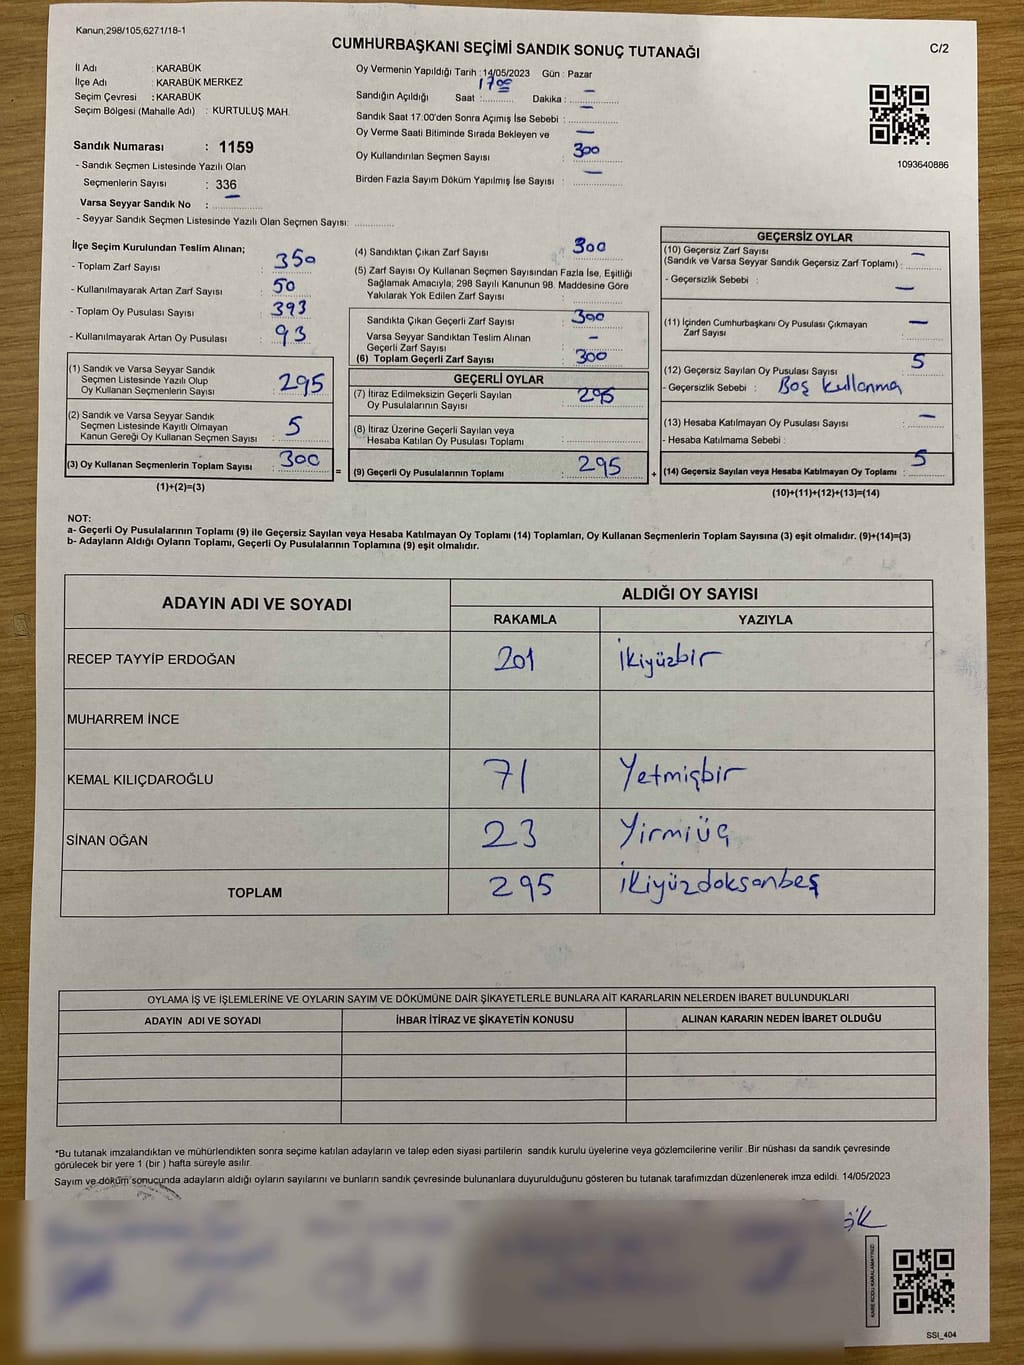 Kanun;298/105,6271/18-1
CUMHURBAŞKANI SEÇİMİ SANDIK SONUÇ TUTANAĞI
C/2
İl Adı : KARABÜK
İlçe Adı : KARABÜK MERKEZ
Seçim Çevresi : KARABÜK
Seçim Bölgesi (Mahalle Adı) : KURTULUŞ MAH.
Sandık Numarası : 1159
- Sandık Seçmen Listesinde Yazılı Olan
Seçmenlerin Sayısı : 336
Varsa Seyyar Sandık No : –
- Seyyar Sandık Seçmen Listesinde Yazılı Olan Seçmen Sayısı:
Oy Vermenin Yapıldığı Tarih : 14/05/2023 Gün : Pazar
Sandığın Açıldığı Saat : 17 00 Dakika : –
Sandık Saat 17.00'den Sonra Açımış İse Sebebi : –
Oy Verme Saati Bitiminde Sırada Bekleyen ve –
Oy Kullandırılan Seçmen Sayısı : 300
Birden Fazla Sayım Döküm Yapılmış İse Sayısı : –
1093640886
İlçe Seçim Kurulundan Teslim Alınan;
- Toplam Zarf Sayısı : 350
- Kullanılmayarak Artan Zarf Sayısı : 50
- Toplam Oy Pusulası Sayısı : 393
- Kullanılmayarak Artan Oy Pusulası : 93
(1) Sandık ve Varsa Seyyar Sandık
Seçmen Listesinde Yazılı Olup
Oy Kullanan Seçmenlerin Sayısı : 295
(2) Sandık ve Varsa Seyyar Sandık
Seçmen Listesinde Kayıtlı Olmayan
Kanun Gereği Oy Kullanan Seçmen Sayısı : 5
(3) Oy Kullanan Seçmenlerin Toplam Sayısı : 300
(1)+(2)=(3)
=
(4) Sandıktan Çıkan Zarf Sayısı : 300
(5) Zarf Sayısı Oy Kullanan Seçmen Sayısından Fazla İse, Eşitliği
Sağlamak Amacıyla; 298 Sayılı Kanunun 98. Maddesine Göre
Yakılarak Yok Edilen Zarf Sayısı :
Sandıkta Çıkan Geçerli Zarf Sayısı : 300
Varsa Seyyar Sandıktan Teslim Alınan
Geçerli Zarf Sayısı : –
(6) Toplam Geçerli Zarf Sayısı : 300
GEÇERLİ OYLAR
(7) İtiraz Edilmeksizin Geçerli Sayılan
Oy Pusulalarının Sayısı : 295
(8) İtiraz Üzerine Geçerli Sayılan veya
Hesaba Katılan Oy Pusulası Toplamı :
(9) Geçerli Oy Pusulalarının Toplamı : 295
+
GEÇERSİZ OYLAR
(10) Geçersiz Zarf Sayısı –
(Sandık ve Varsa Seyyar Sandık Geçersiz Zarf Toplamı) :
- Geçersizlik Sebebi : –
(11) İçinden Cumhurbaşkanı Oy Pusulası Çıkmayan –
Zarf Sayısı :
(12) Geçersiz Sayılan Oy Pusulası Sayısı : 5
- Geçersizlik Sebebi : Boş kullanma
(13) Hesaba Katılmayan Oy Pusulası Sayısı : –
- Hesaba Katılmama Sebebi :
(14) Geçersiz Sayılan veya Hesaba Katılmayan Oy Toplamı : 5
(10)+(11)+(12)+(13)=(14)
NOT:
a- Geçerli Oy Pusulalarının Toplamı (9) ile Geçersiz Sayılan veya Hesaba Katılmayan Oy Toplamı (14) Toplamları, Oy Kullanan Seçmenlerin Toplam Sayısına (3) eşit olmalıdır. (9)+(14)=(3)
b- Adayların Aldığı Oyların Toplamı, Geçerli Oy Pusulalarının Toplamına (9) eşit olmalıdır.
ADAYIN ADI VE SOYADI
ALDIĞI OY SAYISI
RAKAMLA YAZIYLA
RECEP TAYYİP ERDOĞAN 201 ikiyüzbir
MUHARREM İNCE
KEMAL KILIÇDAROĞLU 71 Yetmişbir
SİNAN OĞAN 23 Yirmiüç
TOPLAM 295 ikiyüzdoksanbeş
OYLAMA İŞ VE İŞLEMLERİNE VE OYLARIN SAYIM VE DÖKÜMÜNE DAİR ŞİKAYETLERLE BUNLARA AİT KARARLARIN NELERDEN İBARET BULUNDUKLARI
ADAYIN ADI VE SOYADI İHBAR İTİRAZ VE ŞİKAYETİN KONUSU ALINAN KARARIN NEDEN İBARET OLDUĞU
*Bu tutanak imzalandıktan ve mühürlendikten sonra seçime katılan adayların ve talep eden siyasi partilerin sandık kurulu üyelerine veya gözlemcilerine verilir .Bir nüshası da sandık çevresinde
görülecek bir yere 1 (bir ) hafta süreyle asılır.
Sayım ve döküm sonucunda adayların aldığı oyların sayılarını ve bunların sandık çevresinde bulunanlara duyurulduğunu gösteren bu tutanak tarafımızdan düzenlenerek imza edildi. 14/05/2023
KARE KODU KARALAMAYINIZ!
SSI_404